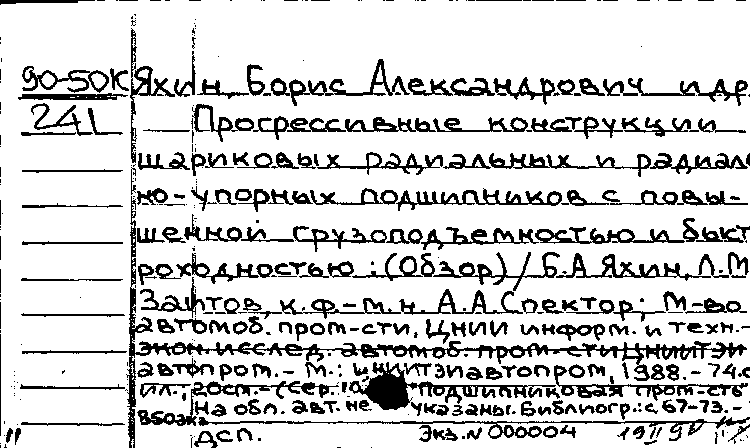 90-50К Яхин, Борис Александрович и др
241 Прогрессивные конструкции
шариковых радиальных и радиаль
но-упорных подшипников с повы-
шенной грузоподъемностью и быст
роходностью : (Обзор) / Б.А Яхин, Л.М
Заитов, к.ф-м.н. А.А.Спектор; М-во
автомоб. пром-сти, ЦНИИ информ. и техн.-
экон. исслед. автомоб. пром-сти ЦНИИТЭИ
автопром. - М.: ЦНИИТЭИавтопром, 1988. - 74.с
ил.; 20см. - (Сер. "Подшипниковая пром-сть"
На обл. авт. не указаны. Библиогр.: с 67-73. -
850экз
ДСП. Экз. N 000004